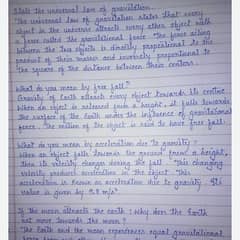 State the universal law of gravitation.
The universal law of gravitation states that every
object in the universe attracts every other object with
a force called the gravitational force. The force acting
between the two objects is directly proportional to the
product of their masses and inversely proportional to
the square of the distance between their centers.
What do you mean by free fall?
Gravity of Earth attracts every object towards its centre.
When an object is released from a height, it falls towards
the surface of the Earth under the influence of gravitational
force. The motion of the object is said to have free fall.
What do you mean by acceleration due to gravity?
When an object falls towards the ground from a height,
then its velocity changes during the fall. This changing
velocity produces acceleration in the object. This
acceleration is known as acceleration due to gravity. Its
value is given by 9.8 m/s²
If the moon attracts the Earth, Why does the Earth
not move towards the moon?
The Earth and the moon experiences equal gravitational